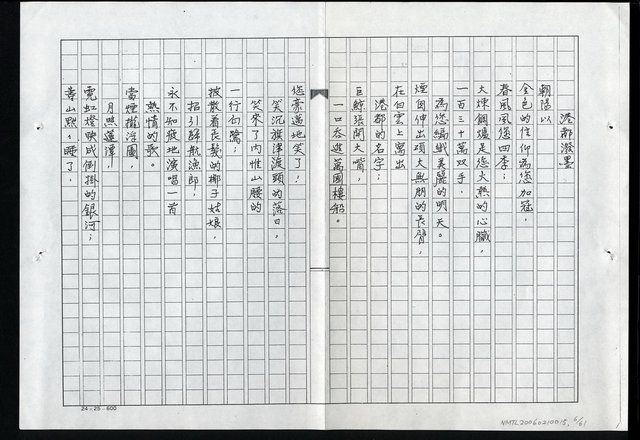 港都潑墨
朝陽以
金色的信仰為您加冠，
春風風您四季；
大煉鋼爐是您火熱的心臟，
一百三十萬双手，
為您編織美麗的明天。
煙囱伸出碩大無朋的長臂，
在白雲上寫出
港都的名字；
巨鯨張開大嘴，
一口吞進萬國樓船。
您豪邁地笑了！
笑沉旗津渡頭的落日，
笑來了內惟山腰的
一行白鷺；
披散着長髮的椰子姑娘，
招引歸航漁郎；
永不知疲地演唱一首
熱情的歌。
當煙籠浮圖，
月照蓮潭；
霓虹燈映成倒掛的銀河；
壽山默默睡了，
24×25=600
NMTL20060210015, 6/61